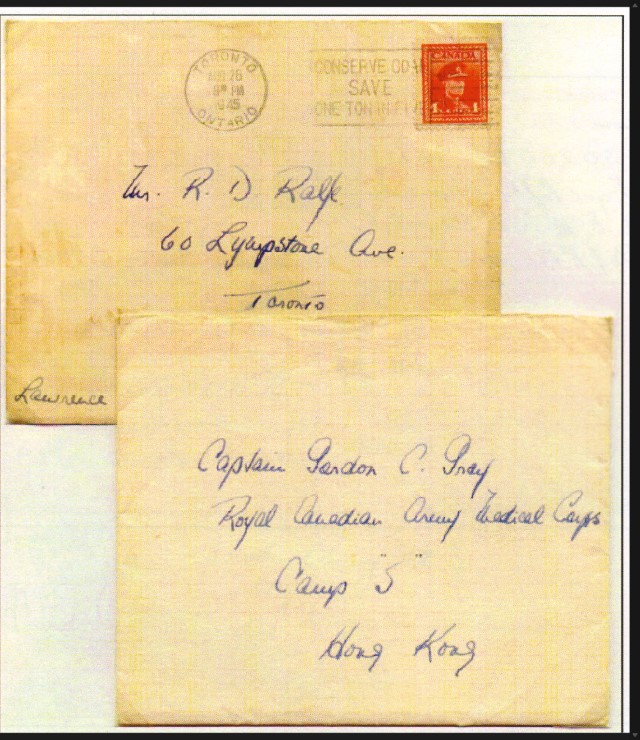 TORONTO
1945
ONTARIO
CONSERVE
SAVE
ONE TON IN
CANADA
1 1
Mr. R. D. Ralfe
60 Lympstone Ave.
Toronto
Lawrence
Captain Gordon C. Gray
Royal Canadian Army Medical Corps
Camp "S"
Hong Kong